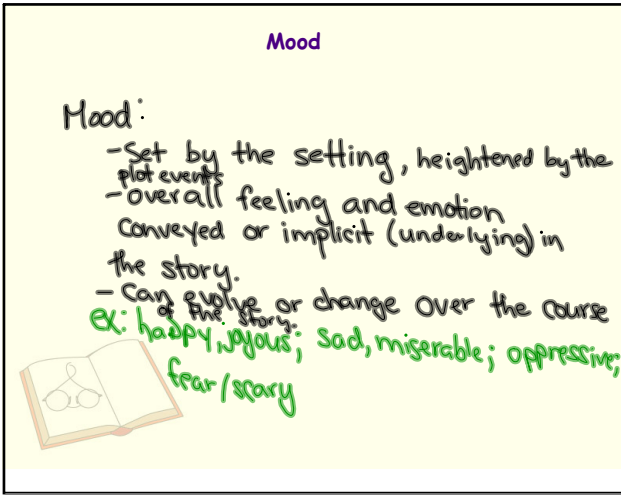 Mood
Mood:
-Set by the setting, heightened by the
plot events
-overall feeling and emotion
conveyed or implicit (underlying) in
the story.
- Can evolve or change over the course
of the story.
ex: happy, joyous; sad, miserable; oppressive;
fear/scary